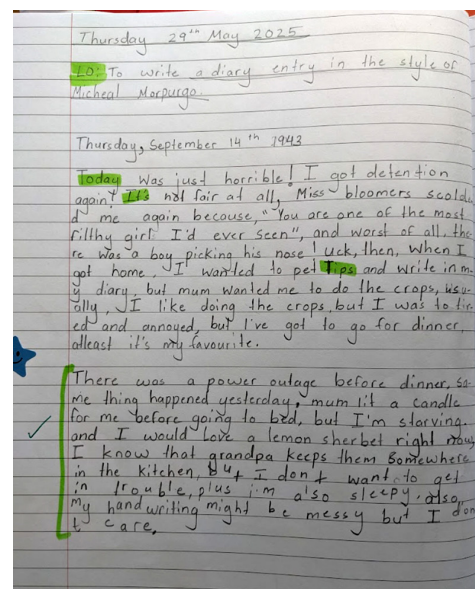 Thursday 29th May 2025
LO: To write a diary entry in the style of
Micheal Morpurgo.
Thursday, September 14th 1943
Today was just horrible! I got detention
again! It's not fair at all, Miss bloomers scold
d me again because, "You are one of the most
filthy girl I'd ever seen", and worst of all, the
re was a boy picking his nose! Uck, then, when I
got home, I wanted to pet Tips and write in m
y diary, but mum wanted me to do the crops, usu
ally, I like doing the crops, but I was to tir
ed and annoyed, but I've got to go for dinner
atleast it's my favourite.
There was a power outage before dinner, sa
me thing happened yesterday, mum lit a candle
for me before going to bed, but I'm starving.
and I would love a lemon sherbet right now,
I know that grandpa keeps them somewhere
in the kitchen, but I don't want to get
in trouble, plus i'm also sleepy, also,
my handwriting might be messy but I don
t care.